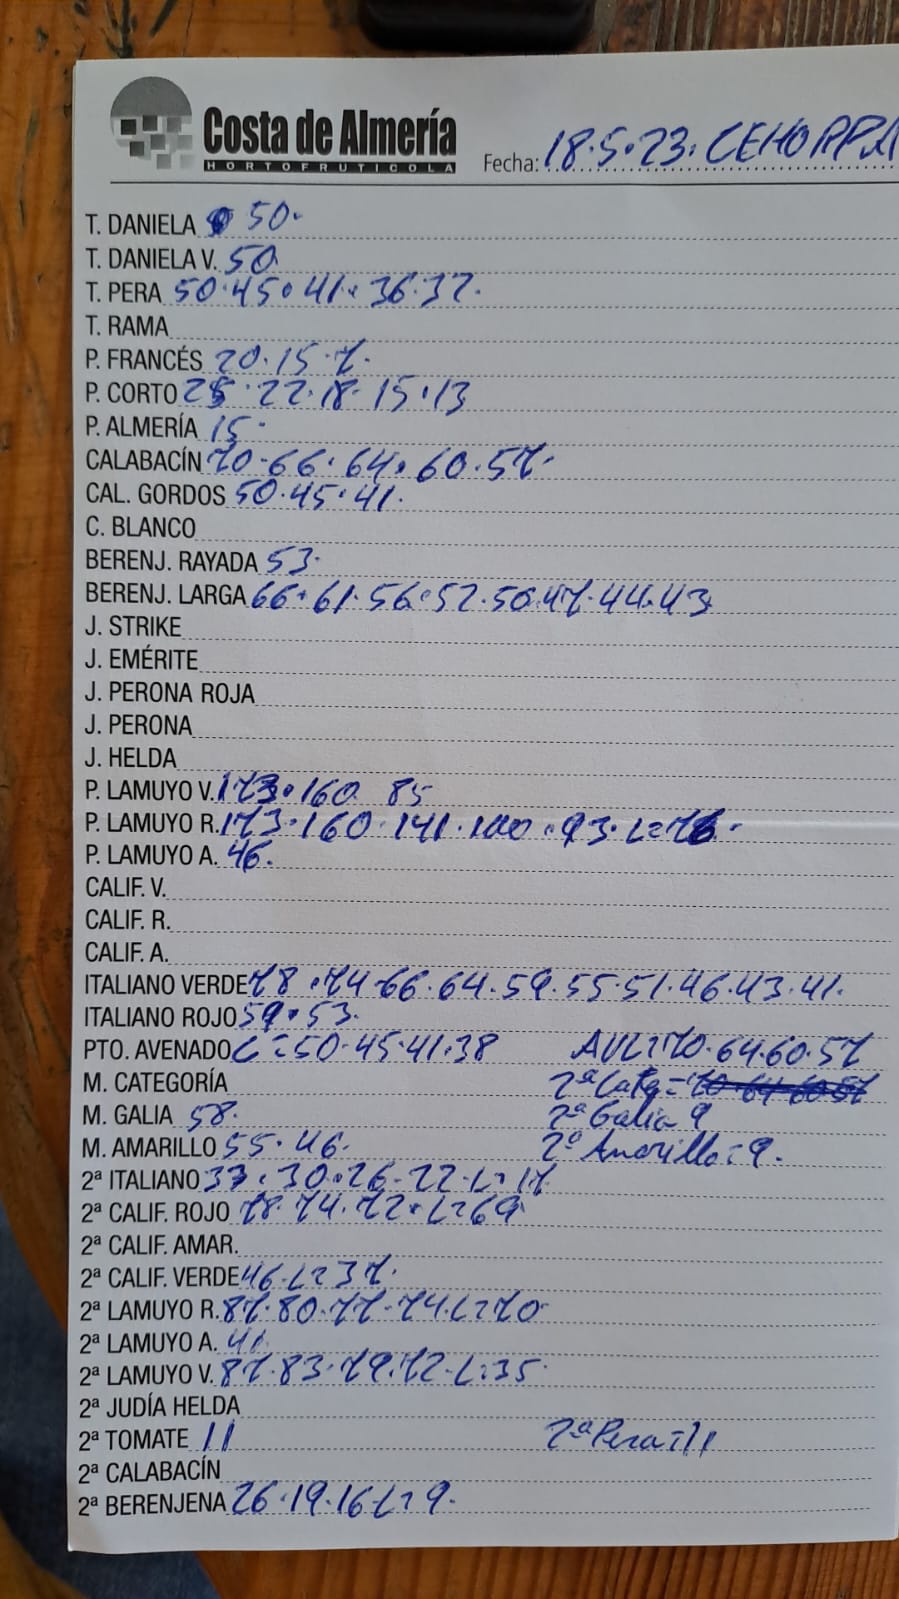 Costa de Almería
HORTOFRUTICOLA
Fecha: 18.5.23. CEHORPA
T. DANIELA 50.
T. DANIELA V. 50
T. PERA 50.45.41.36.32.
T. RAMA
P. FRANCÉS 20.15.7.
P. CORTO 25.22.18.15.13
P. ALMERÍA 15.
CALABACÍN 70.66.64.60.57.
CAL. GORDOS 50.45.41.
C. BLANCO
BERENJ. RAYADA 53.
BERENJ. LARGA 66.61.56.52.50.47.44.43
J. STRIKE
J. EMÉRITE
J. PERONA ROJA
J. PERONA
J. HELDA
P. LAMUYO V. 173.160 85
P. LAMUYO R. 173.160.141.100.93.L=76.
P. LAMUYO A. 46.
CALIF. V.
CALIF. R.
CALIF. A.
ITALIANO VERDE 78.74.66.64.59.55.51.46.43.41.
ITALIANO ROJO 59.53.
PTO. AVENADO C=50.45.41.38 AVL=70.64.60.57
M. CATEGORÍA 2ª Catg=70.64.60.57
M. GALIA 58. 2ª Galia 9
M. AMARILLO 55.46. 2º Amarillo=9.
2ª ITALIANO 33.30.26.22.L=17
2ª CALIF. ROJO 78.74.72.L=69
2ª CALIF. AMAR.
2ª CALIF. VERDE 46.L=37.
2ª LAMUYO R. 87.80.77.74.L=70
2ª LAMUYO A. 41.
2ª LAMUYO V. 87.83.79.72.L=35
2ª JUDÍA HELDA
2ª TOMATE 11 2ª Pera=11
2ª CALABACÍN
2ª BERENJENA 26.19.16.L=9.